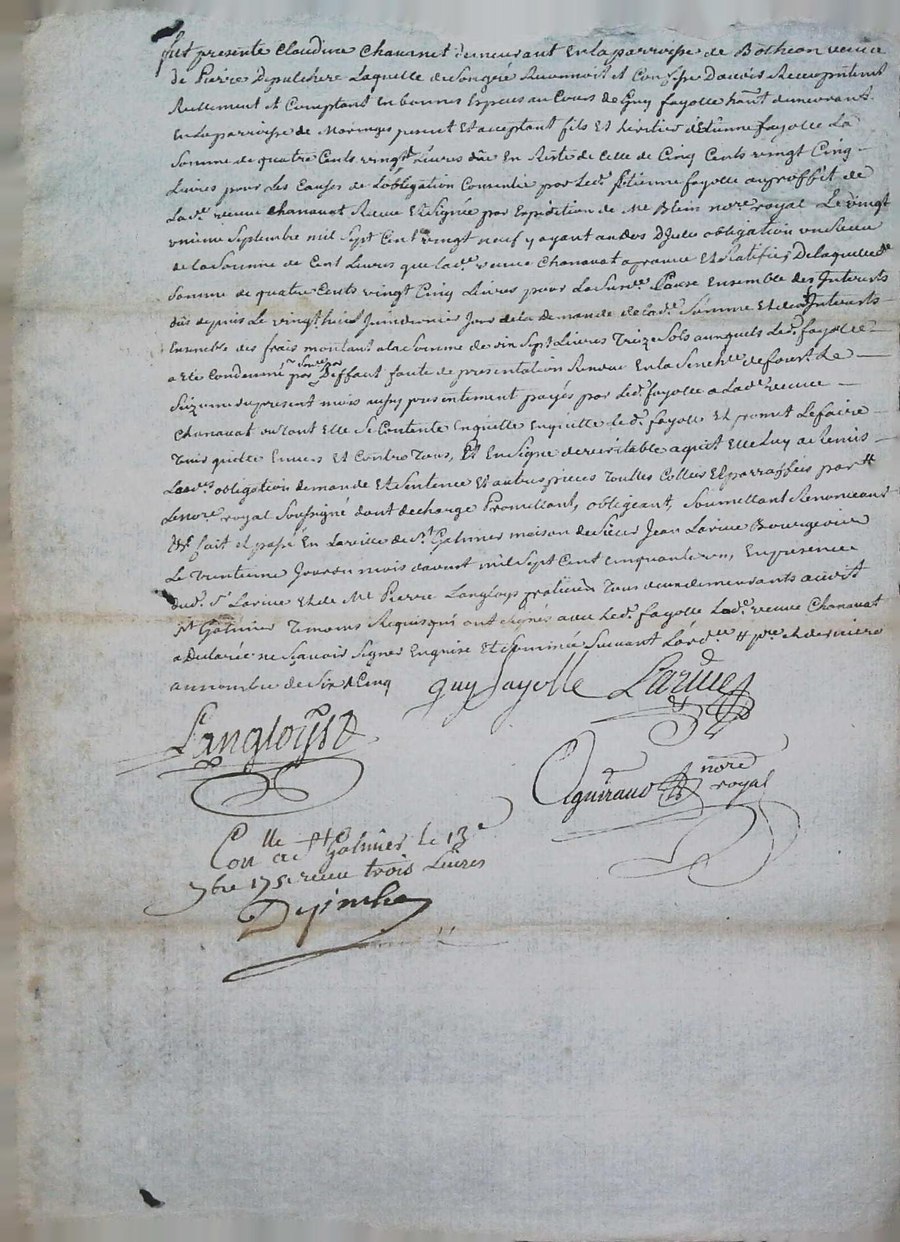 fut presente Claudine Chanavat demeurant En la parroisse de Botheon veuve
de Pierre Depulchere Laquelle de Son gré Reconnoit et Confesse D'avoir Receu pntemt
Reellement et Comptant En bonnes Especes au Cours de Guy fayolle hant demeurant
En la parroisse de Moringes pnent Et acceptant fils Et heritier d'Etienne fayolle La
Somme de quatre Cents vingt Livres düe En Reste de Celle de Cinq Cents vingt Cinq
Livres pour Les Causes de L'obligation Consentie par Led. Etienne fayolle au proffit de
La de. veuve Chanavat Receue Et Signée par Expedition de Me Blein nore. royal Le vingt
unieme Septembre mil Sept Cent vingt neuf y ayant au dos D'Jcelle obligation un Receu
de la Somme de Cent Livres que la de. veuve Chanavat a Et Ratifié, De laquelle de.
Somme de quatre Cents vingt Cinq Livres pour La Susde. Cause Ensemble des Interests
dûs depuis Le vingt huit Juin dernier Jour de la demande de la de. Somme Et des Interests
Ensemble des frais montant a la Somme de dix Sept Livres Treize Sols auxquels Led. fayolle
a Eté Condamné par Sence par Deffaut faute de presentation Rendue En la Senechée. de forest Le
Seizeme du present mois aussy presentement payés par Led. fayolle a La de. veuve
Chanavat dont Elle Se Contente En quitte led. fayolle Et promet Le faire
Tenir quitte Envers Et Contre Tous, Et En Signe de veritable aquit Elle Luy a Remis
Lesdes. obligation demande Et Sentence Et autres pieces Touttes Cottées Et parraffées par
Le nore. royal Soussigné dont decharge Promettant, obligeant, Soumettant Renonceant
Et fait et passé En La ville de St. Galmier maison de Sieur Jean Larive Bourgeois
Le Trentieme Jour du mois d'aoust mil Sept Cent Cinquante un, En presence
dud. Sr. Larive Et de Me Pierre Langloys praticien Tous deux demeurants aud.
St Galmier Temoins Requis qui ont Signés avec Led. fayolle La de. veuve Chanavat
a Declarée ne Sçavoir Signer Enquise Et Sommée Suivant L'ord.
au nombre de Six & Cinq
guy fayolle Larive
Langloys
Aguiraud nore royal
Conlle a St Galmier le 13e
7bre 1751 receu trois Livres